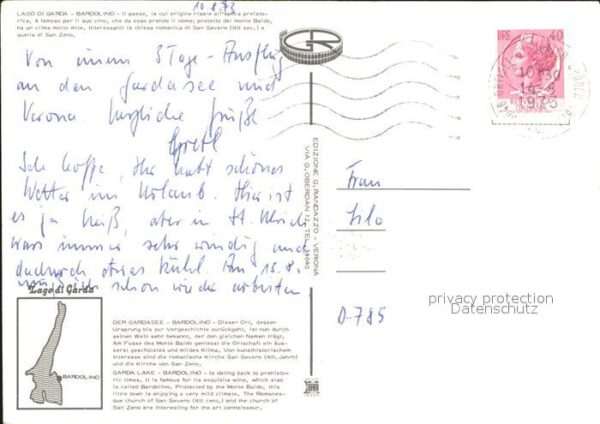 10.8.73
LAGO DI GARDA - BARDOLINO - Il paese, la cui origine risale all'epoca preisto-
rica, è famoso per il suo vino, che da esso prende il nome; protetto dal monte Baldo,
ha un clima molto mite. Interessanti la chiesa romanica di San Severo (XII sec.) e
quella di San Zeno.
Von unserem 3 Tage-Ausflug
an den Gardasee und
Verona herzliche Grüße
Gretl
Ich hoffe, Ihr habt schönes
Wetter im Urlaub. Hier ist
es ja heiß, aber in St. Ulrich
war's immer sehr windig und
dadurch etwas kühl. Am 13.8.
schon wieder arbeiten
EDIZIONE G. RANDAZZO - VERONA
VIA G. OBERDAN 12, TEL.
Frau
D-785
privacy protection
Datenschutz
Lago di Garda
BARDOLINO
DER GARDASEE - BARDOLINO - Dieser Ort, dessen
Ursprung bis zur Vorgeschichte zurückgeht, ist nun durch
seinen Wein sehr bekannt, der den gleichen Namen trägt.
Am Fusse des Monte Baldo geniesst die Ortschaft ein äus-
serst geschütztes und mildes Klima. Von kunsthistorischem
Interesse sind die romanische Kirche San Severo (XII. Jahrh)
und die Kirche von San Zeno.
GARDA LAKE - BARDOLINO - Is dating back to prehisto-
ric times. It is famous for its exquisite wine, which also
is called Bardolino. Protected by the Monte Baldo, this
little town is enjoying a very mild climate. The Romanes-
que church of San Severo (XII cent.) and the church of
San Zeno are interesting for the art connoisseur.